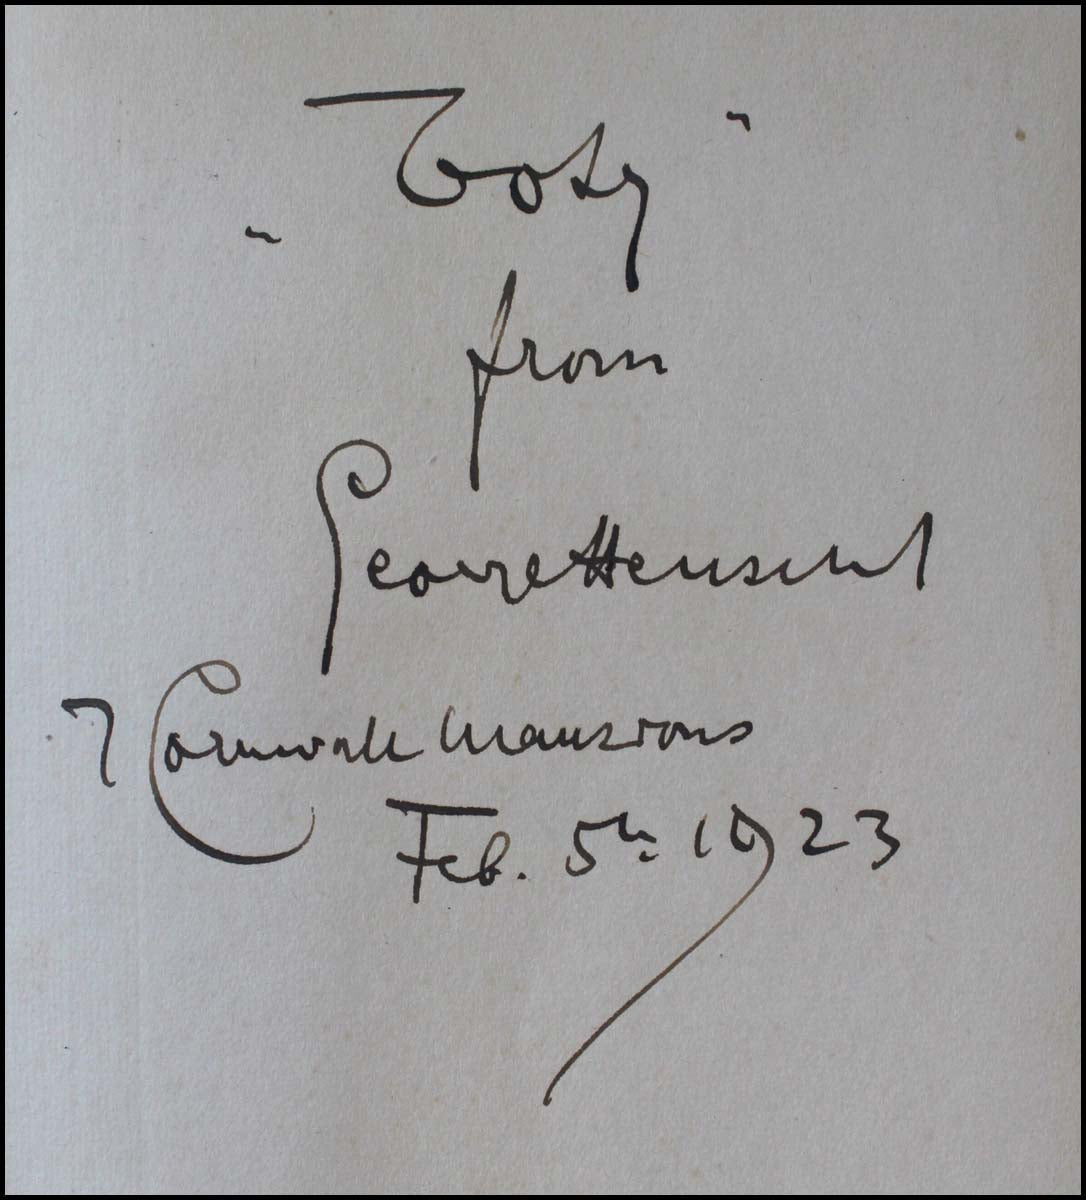 „Toty"
from
George Henschel
7 Cornwall Mansions
Feb. 5th 1923